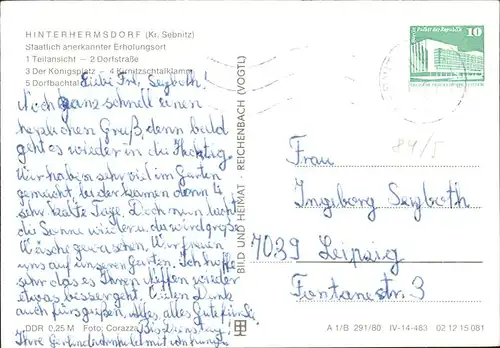 HINTERHERMSDORF (Kr. Sebnitz)
Staatlich anerkannter Erholungsort
1 Teilansicht — 2 Dorfstraße
3 Der Königsplatz — 4 Kirnitzschtalklamm
5 Dorfbachtal
Liebe Frl. Seyboth!
Noch ganz schnell einen
herzlichen Gruß, denn bald
geht es wieder in die
Wir haben sehr viel im Garten
gemacht, bei der kamen dann 4
sehr kalte Tage. Doch nun lacht
die Sonne wieder u. da wird große
Wäsche gewaschen. Wir freuen
uns auf unseren Garten. Ich hoffe
sehr das es Ihnen wieder
etwas besser geht. Vielen Dank
auch fürs grüßen. Alles, alles Gute für Sie.
Bis Dienstag!
Ihre
DDR 0,25 M Foto: Corazza
BILD UND HEIMAT · REICHENBACH (VOGTL)
Palast der Republik
10
84/5
Frau
Ingeborg Seyboth
7039 Leipzig
Fontanestr. 3
A 1/B 291/80 IV-14-483 02 12 15 081